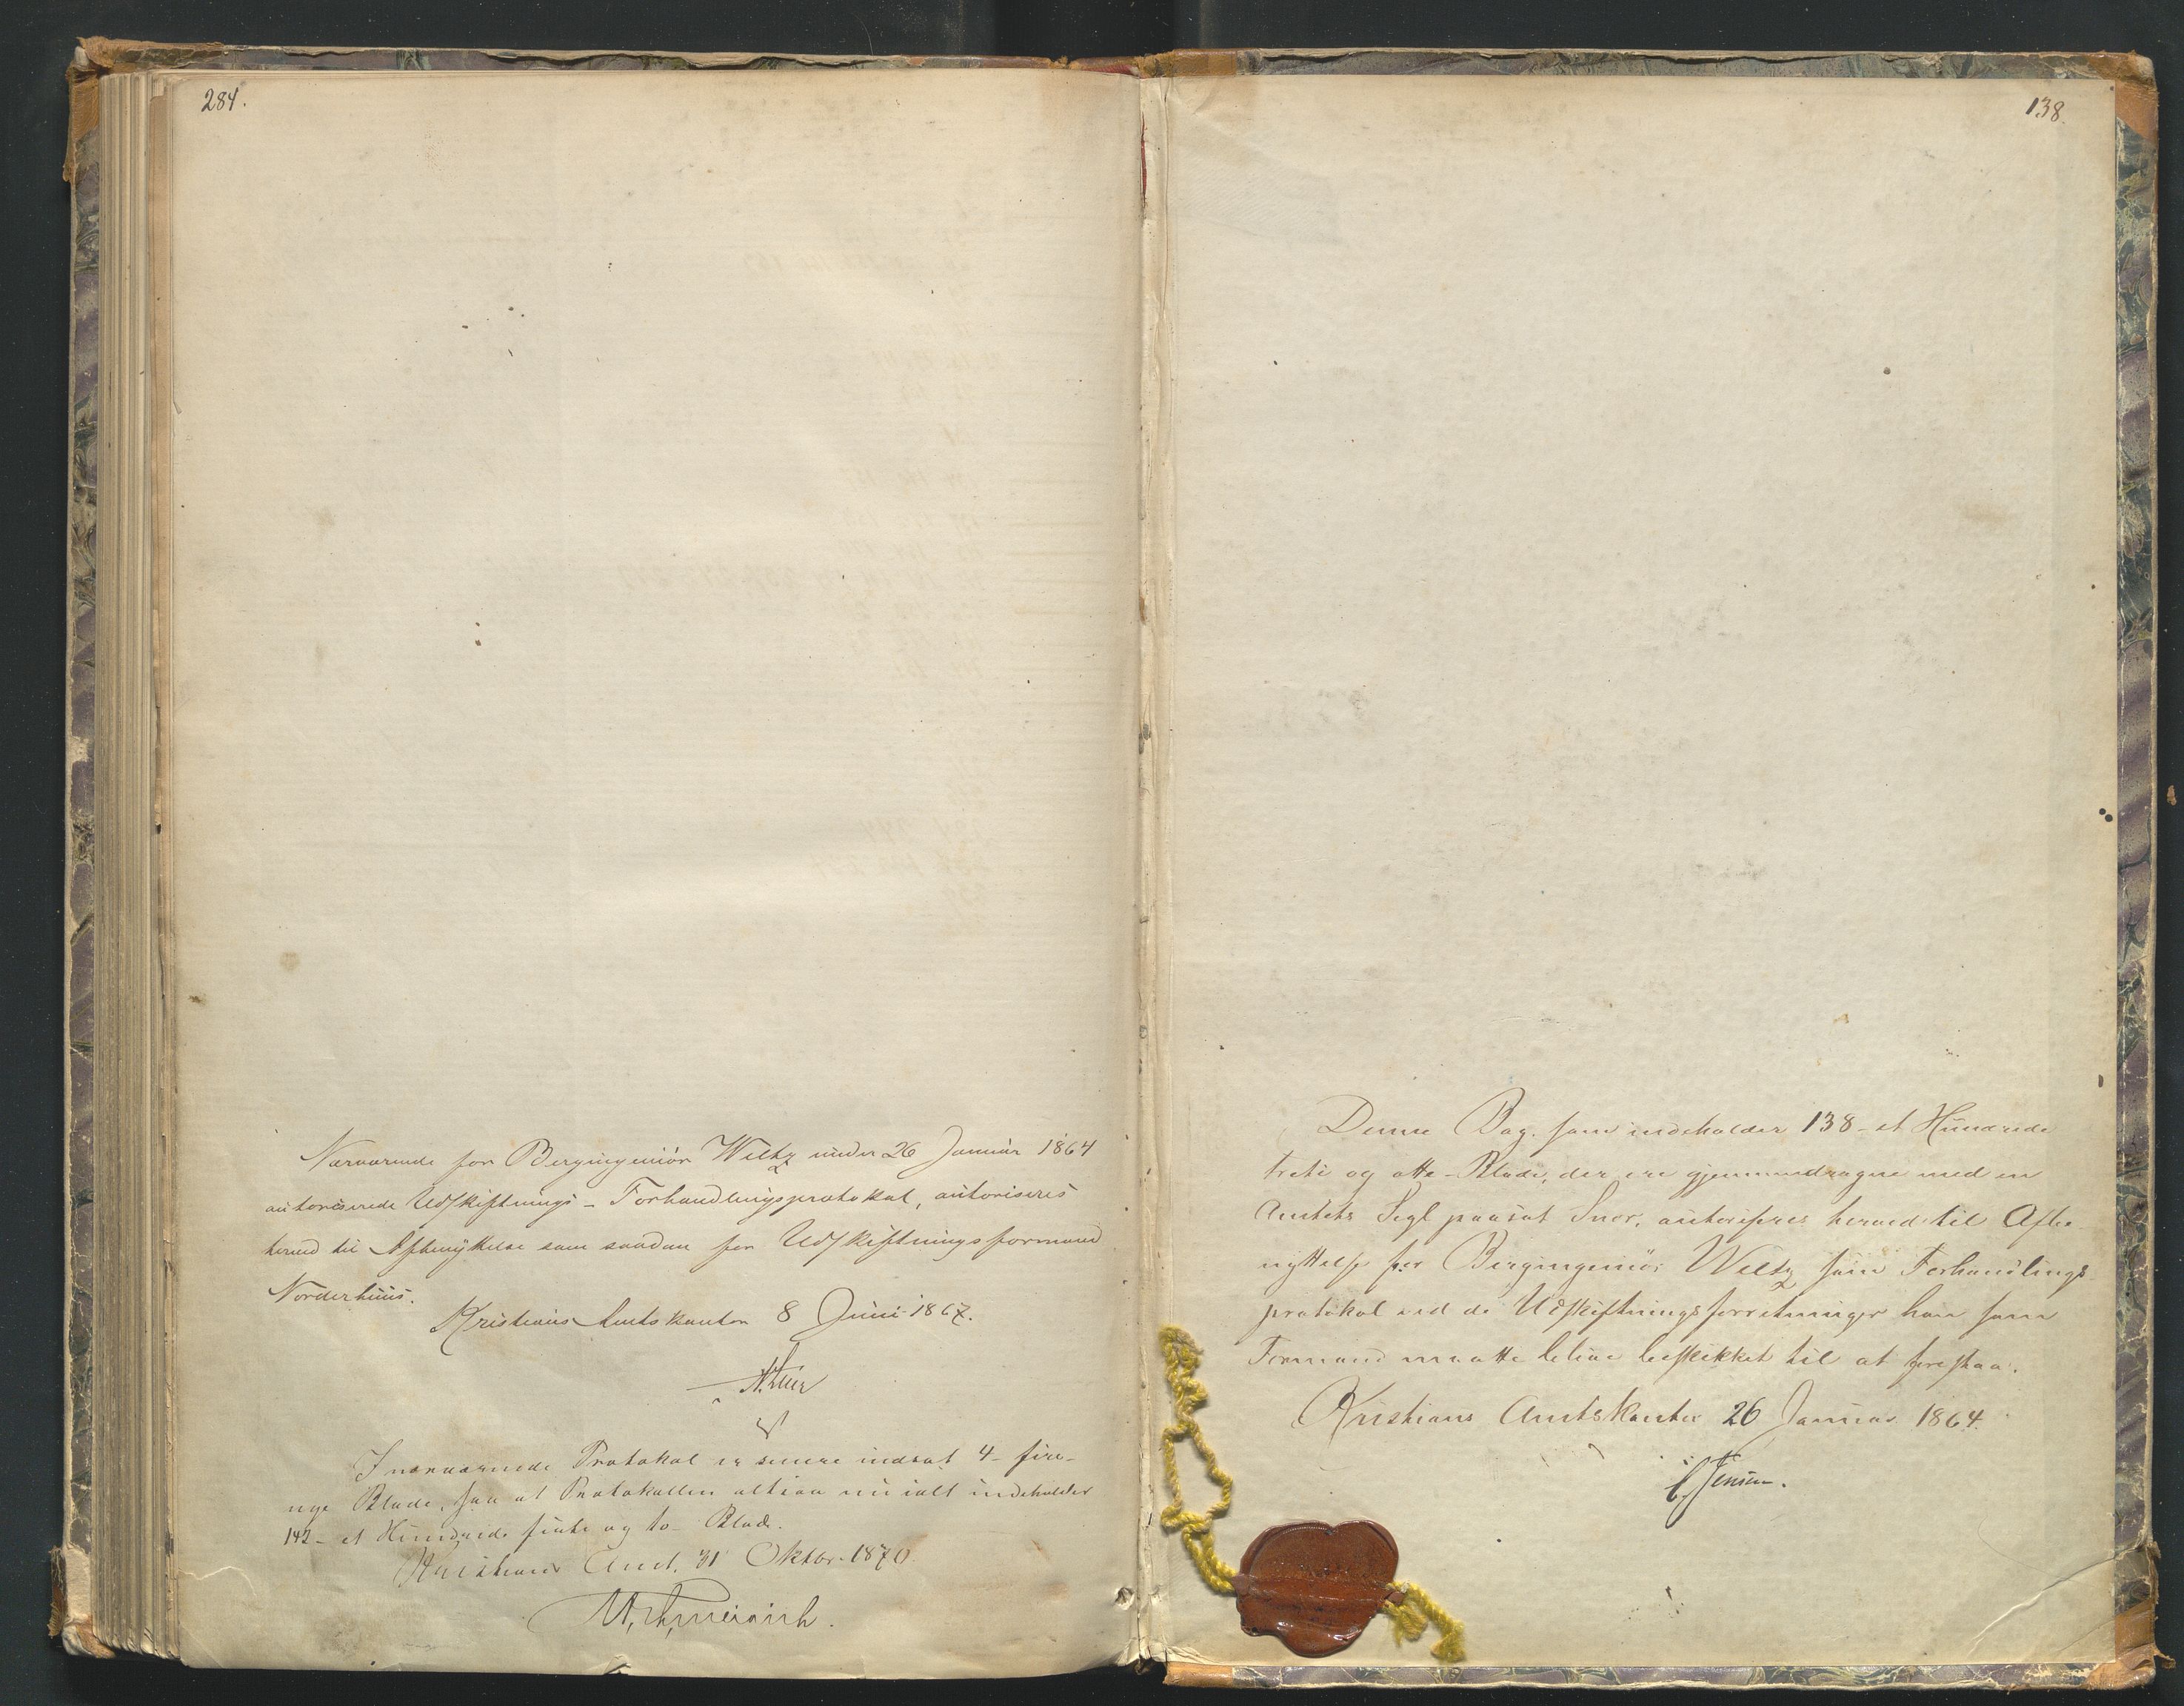 284.
Nærværende for Bergingeniör Weltz under 26 Januar 1864
autoriserede Udskiftnings-Forhandlingsprotokol, autoriseres
herved til Afbenyttelse som saadan for Udskiftningsformand
Norderhuus.
Kristians Amtskontor 8 Juni 1867.
I nærværende Protokol er senere indsat 4 - fire -
nye Blade, saa at Protokollen altsaa nu ialt indeholder
142 - et Hundrede firti og to - Blade.
Kristians Amt. 31 Oktbr. 1870.
138.
Denne Bog, som indeholder 138 - et Hundrede
treti og otte - Blade, der ere gjennemdragne med en
Amtets Segl paasat Snor, autoriseres herved til Afbe-
nyttelse for Bergingeniör Weltz som Forhandlings-
protokol ved de Udskiftningsforretninger han som
Formand maatte blive beskikket til at forestaa.
Kristians Amtskontor 26 Januar 1864.
C Jensen.